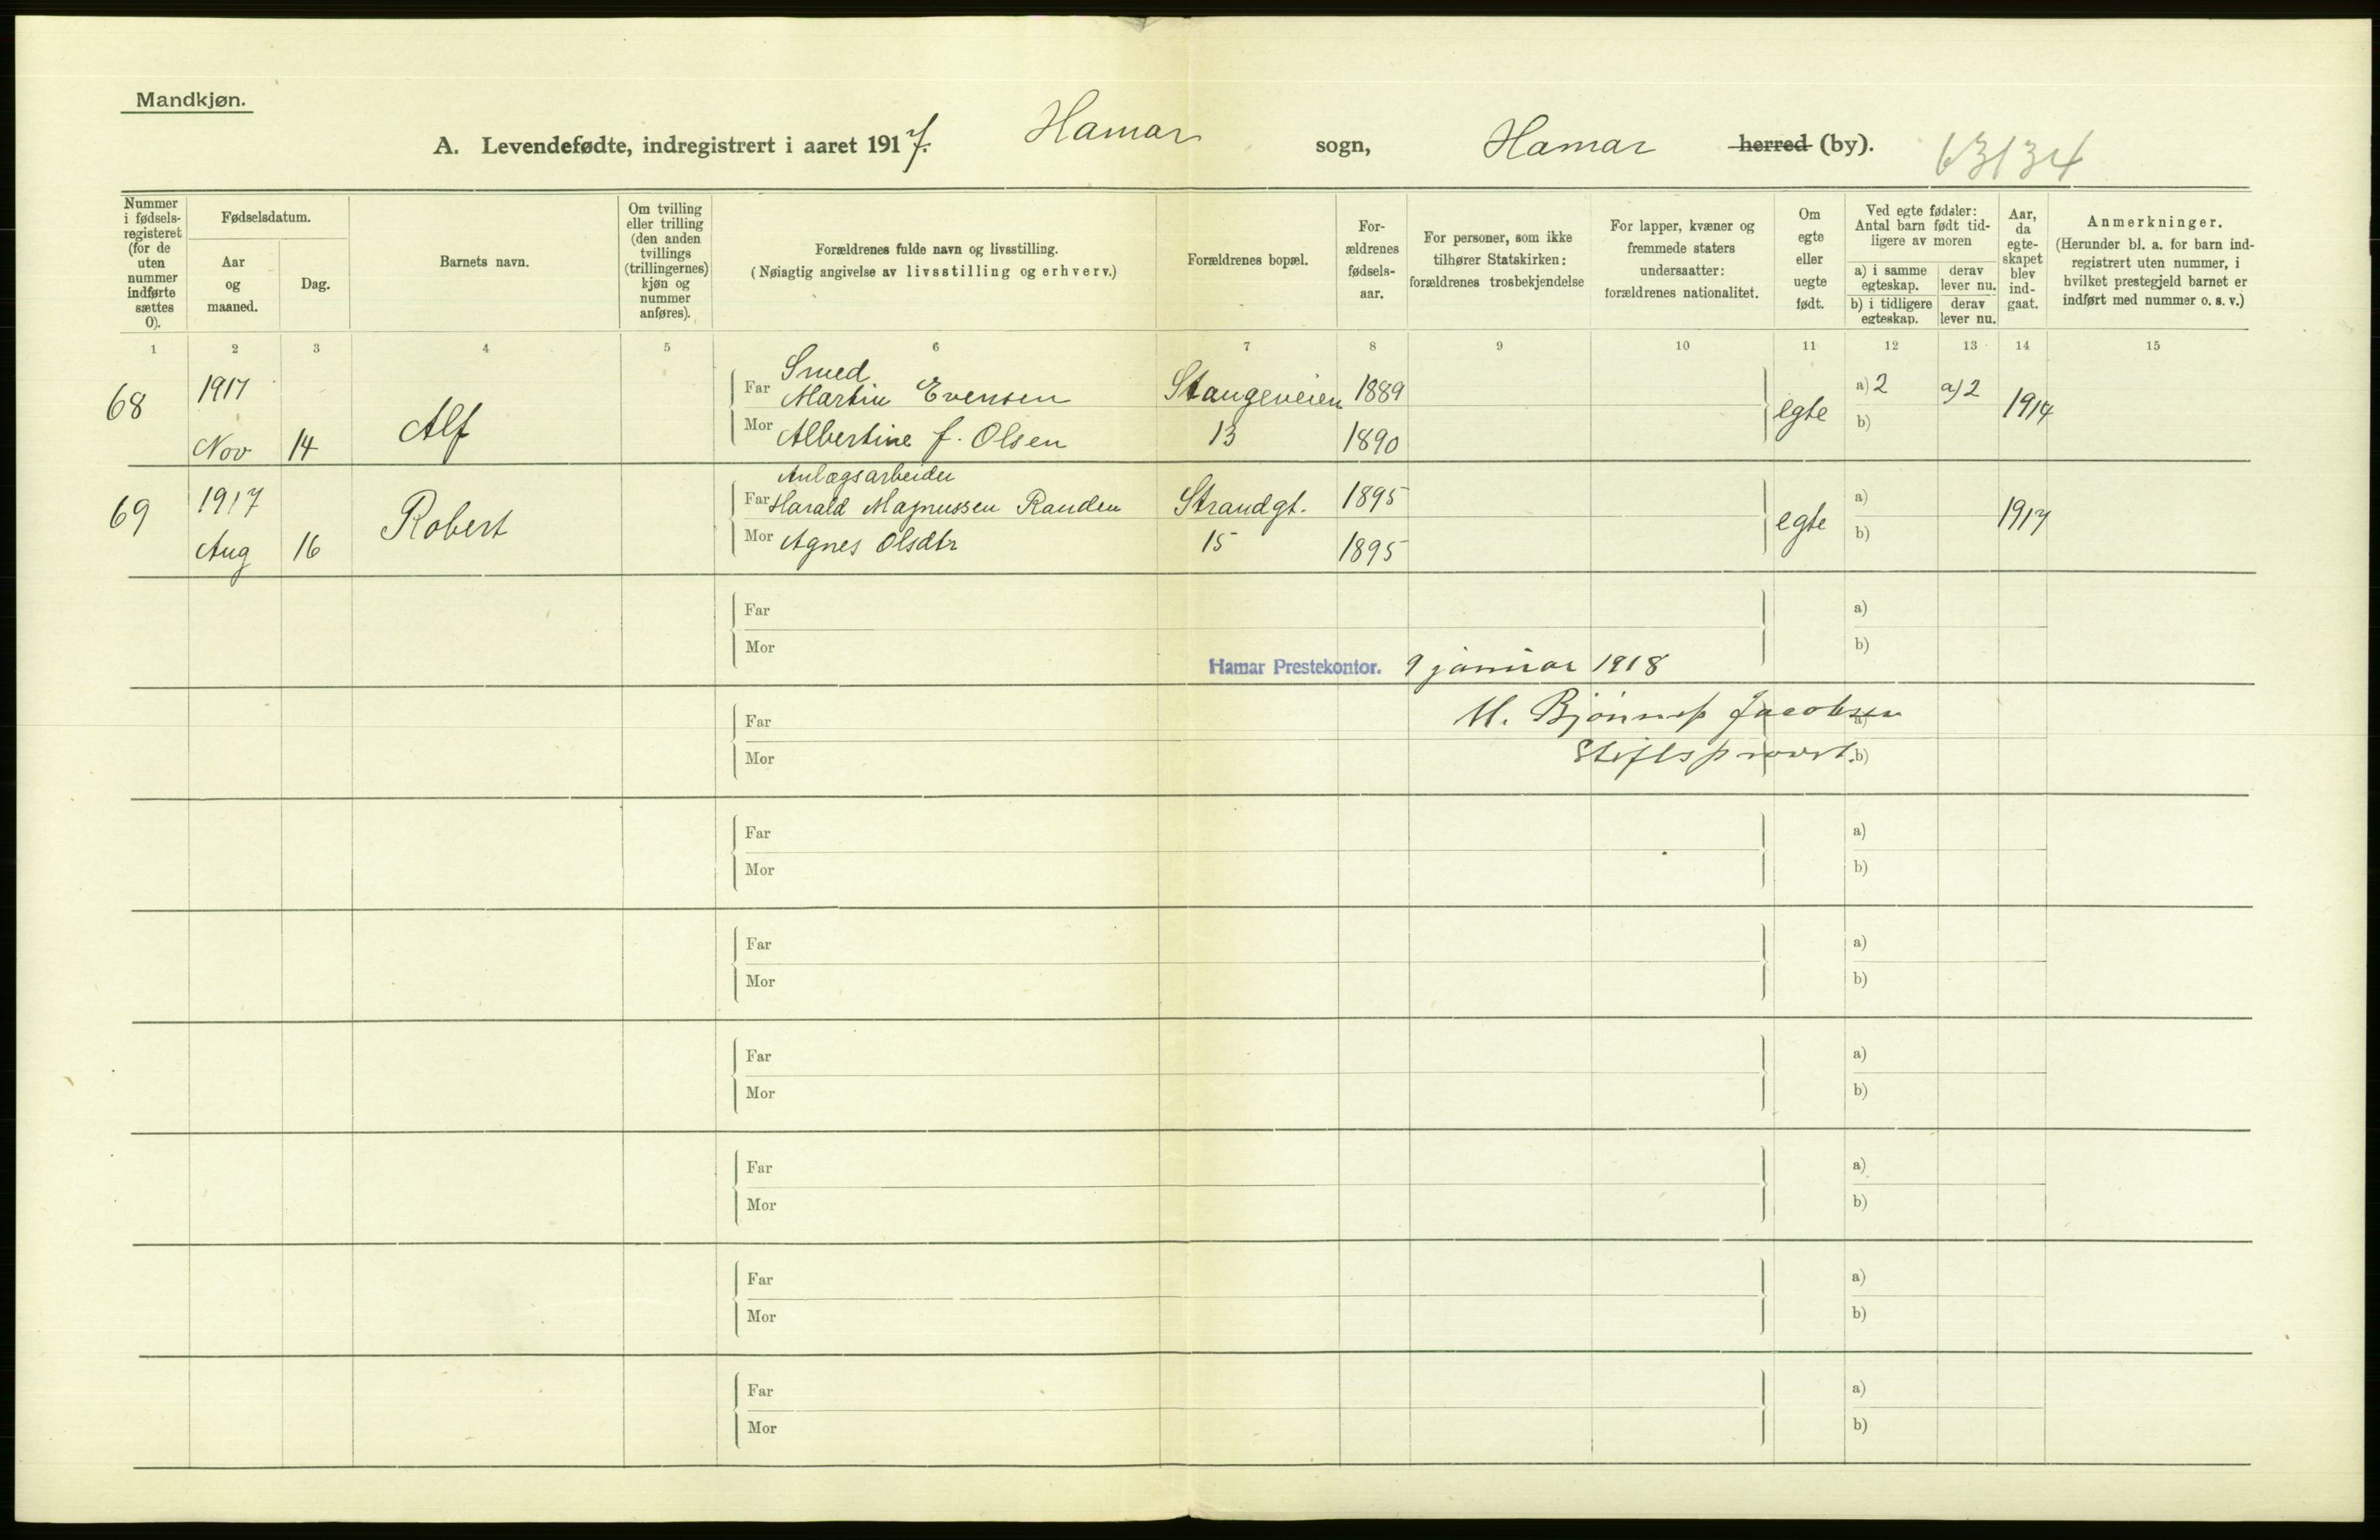 Mandkjøn.
A. Levendefødte, indregistrert i aaret 1917. Hamar sogn, Hamar herred (by). 63134
Nummer i fødsels-registeret (for de uten nummer indførte sættes 0).
Fødselsdatum.
Aar og maaned.
Dag.
Barnets navn.
Om tvilling eller trilling (den anden tvillings (trillingernes) kjøn og nummer anføres).
Forældrenes fulde navn og livsstilling.
(Nøiagtig angivelse av livsstilling og erhverv.)
Forældrenes bopæl.
For-ældrenes fødsels-aar.
For personer, som ikke tilhører Statskirken: forældrenes trosbekjendelse
For lapper, kvæner og fremmede staters undersaatter: forældrenes nationalitet.
Om egte eller uegte født.
Ved egte fødsler: Antal barn født tid-ligere av moren
a) i samme egteskap.
derav lever nu.
b) i tidligere egteskap.
derav lever nu.
Aar, da egte-skapet blev ind-gaat.
Anmerkninger.
(Herunder bl. a. for barn ind-registrert uten nummer, i hvilket prestegjeld barnet er indført med nummer o. s. v.)
1 2 3 4 5 6 7 8 9 10 11 12 13 14 15
Smed
68 1917 Far Martin Evensen Stangeveien 1889 a) 2 a) 2
Nov 14 Alf Mor Albertine f. Olsen 13 1890 egte b) 1914
Anlægsarbeider
69 1917 Far Harald Magnussen Randen Strandgt. 1895 a)
Aug 16 Robert Mor Agnes Olsdtr 15 1895 egte b) 1917
Far a)
Mor b)
Hamar Prestekontor. 9 januar 1918
Far Jacobsen a)
Mor Stiftsprovst. b)
Far a)
Mor b)
Far a)
Mor b)
Far a)
Mor b)
Far a)
Mor b)
Far a)
Mor b)
Far a)
Mor b)